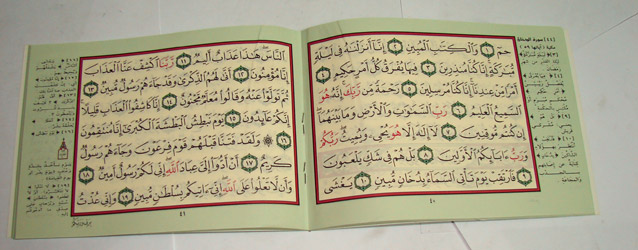 حمٓ ١ وَٱلْكِتَٰبِ ٱلْمُبِينِ ٢ إِنَّآ أَنزَلْنَٰهُ فِى لَيْلَةٍ
مُّبَٰرَكَةٍ إِنَّا كُنَّا مُنذِرِينَ ٣ فِيهَا يُفْرَقُ كُلُّ أَمْرٍ حَكِيمٍ ٤
أَمْرًا مِّنْ عِندِنَآ إِنَّا كُنَّا مُرْسِلِينَ ٥ رَحْمَةً مِّن رَّبِّكَ إِنَّهُۥ هُوَ
ٱلسَّمِيعُ ٱلْعَلِيمُ ٦ رَبِّ ٱلسَّمَٰوَٰتِ وَٱلْأَرْضِ وَمَا بَيْنَهُمَآ
إِن كُنتُم مُّوقِنِينَ ٧ لَآ إِلَٰهَ إِلَّا هُوَ يُحْىِۦ وَيُمِيتُ رَبُّكُمْ
وَرَبُّ ءَابَآئِكُمُ ٱلْأَوَّلِينَ ٨ بَلْ هُمْ فِى شَكٍّ يَلْعَبُونَ
٩ فَٱرْتَقِبْ يَوْمَ تَأْتِى ٱلسَّمَآءُ بِدُخَانٍ مُّبِينٍ ١٠ يَغْشَى
٤٠
ٱلنَّاسَ هَٰذَا عَذَابٌ أَلِيمٌ ١١ رَّبَّنَا ٱكْشِفْ عَنَّا ٱلْعَذَابَ
إِنَّا مُؤْمِنُونَ ١٢ أَنَّىٰ لَهُمُ ٱلذِّكْرَىٰ وَقَدْ جَآءَهُمْ رَسُولٌ مُّبِينٌ ١٣
ثُمَّ تَوَلَّوْا۟ عَنْهُ وَقَالُوا۟ مُعَلَّمٌ مَّجْنُونٌ ١٤ إِنَّا كَاشِفُوا۟ ٱلْعَذَابِ قَلِيلًا
إِنَّكُمْ عَآئِدُونَ ١٥ يَوْمَ نَبْطِشُ ٱلْبَطْشَةَ ٱلْكُبْرَىٰٓ إِنَّا مُنتَقِمُونَ
١٦ وَلَقَدْ فَتَنَّا قَبْلَهُمْ قَوْمَ فِرْعَوْنَ وَجَآءَهُمْ رَسُولٌ
كَرِيمٌ ١٧ أَنْ أَدُّوٓا۟ إِلَىَّ عِبَادَ ٱللَّهِ إِنِّى لَكُمْ رَسُولٌ أَمِينٌ ١٨
وَأَن لَّا تَعْلُوا۟ عَلَى ٱللَّهِ إِنِّىٓ ءَاتِيكُم بِسُلْطَٰنٍ مُّبِينٍ ١٩ وَإِنِّى عُذْتُ
٤١